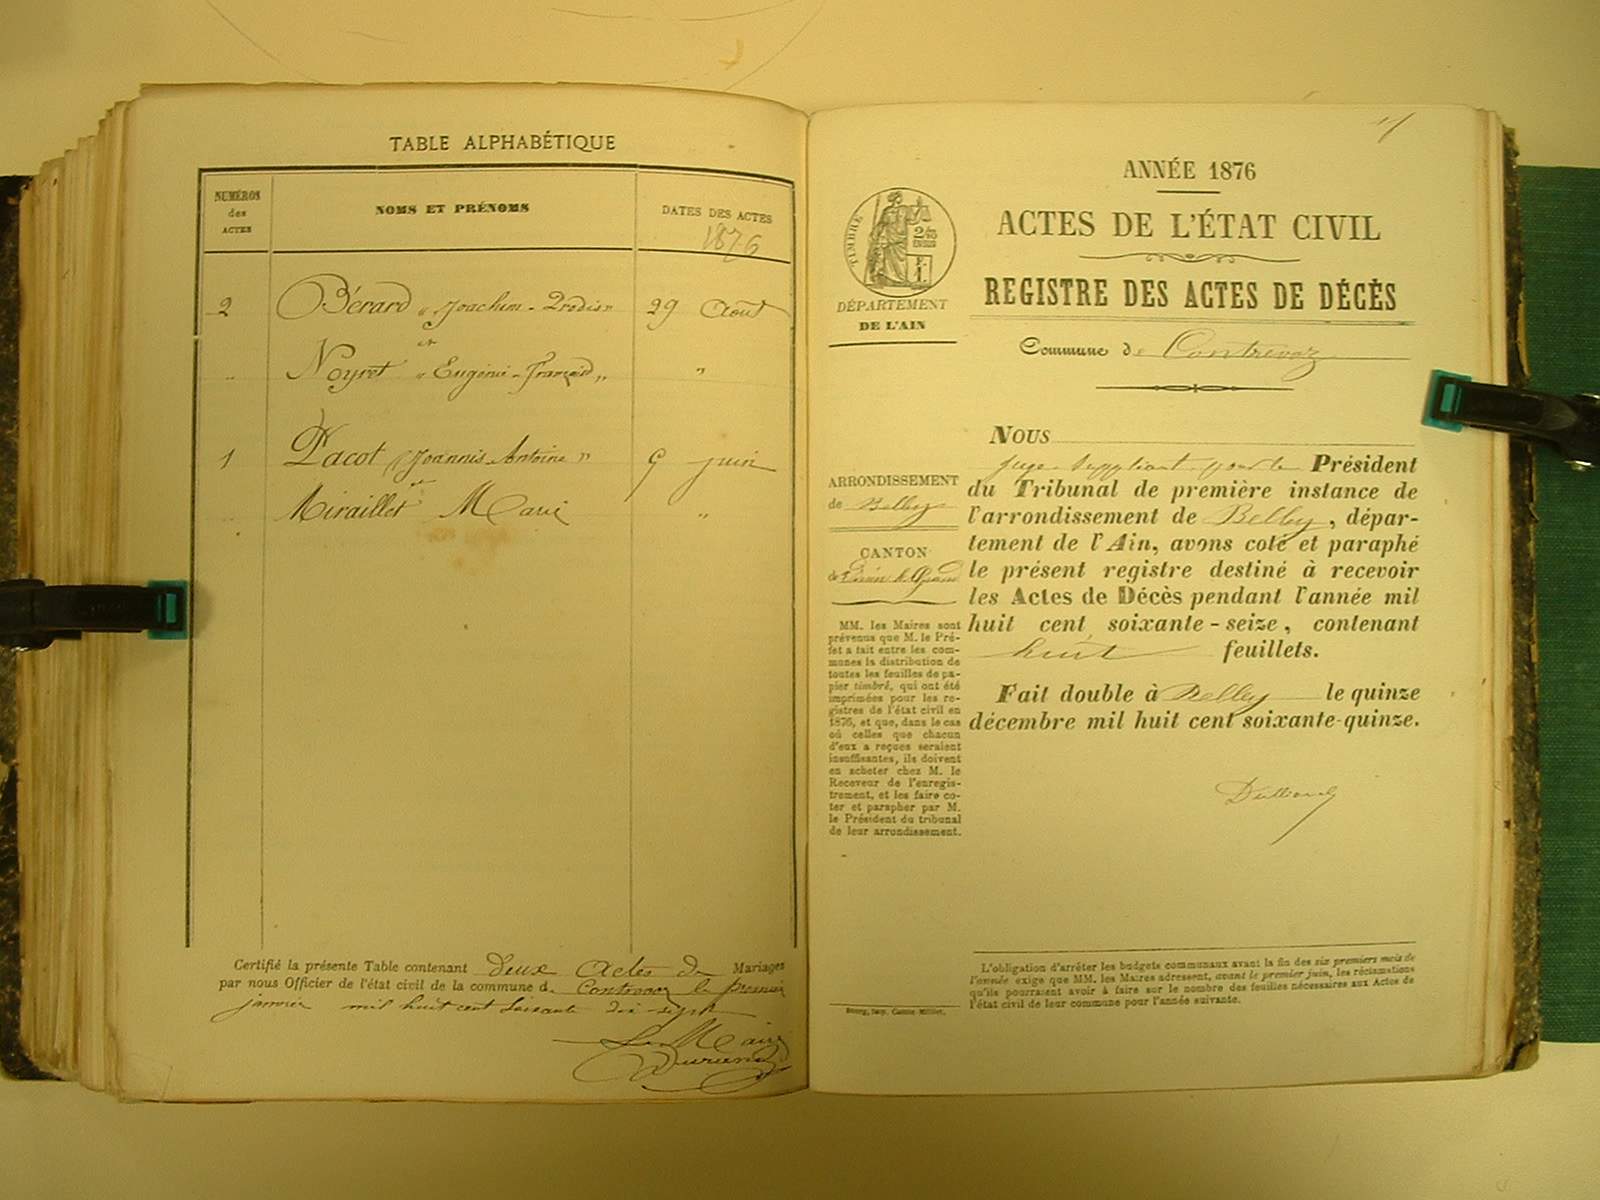 TABLE ALPHABÉTIQUE
NUMÉROS
des
ACTES
NOMS ET PRÉNOMS
DATES DES ACTES
1876
2 Bérard „ Joachim - „ 29 Août
et
„ Noyret „ Eugénie - „ „
1 Pacot „ Joannis Antoine „ 9 juin
et
„ Miraillet Marie „
Certifié la présente Table contenant deux Actes de Mariages
par nous Officier de l'état civil de la commune de Contrevoz le premier
janvier mil huit cent soixante dix-sept
Le Maire
ANNÉE 1876
ACTES DE L'ÉTAT CIVIL
REGISTRE DES ACTES DE DÉCÈS
Commune de Contrevoz
TIMBRE
DÉPARTEMENT
DE L'AIN
ARRONDISSEMENT
de Belley
CANTON
de
MM. les Maires sont
prévenus que M. le Pré-
fet a fait entre les com-
munes la distribution de
toutes les feuilles de pa-
pier timbré, qui ont été
imprimées pour les re-
gistres de l'état civil en
1876, et que, dans le cas
où celles que chacun
d'eux a reçues seraient
insuffisantes, ils doivent
en acheter chez M. le
Receveur de l'enregis-
trement, et les faire co-
ter et parapher par M.
le Président du tribunal
de leur arrondissement.
NOUS
juge suppléant pour le Président
du Tribunal de première instance de
l'arrondissement de Belley, dépar-
tement de l'Ain, avons coté et paraphé
le présent registre destiné à recevoir
les Actes de Décès pendant l'année mil
huit cent soixante-seize, contenant
huit feuillets.
Fait double à Belley le quinze
décembre mil huit cent soixante-quinze.
L'obligation d'arrêter les budgets communaux avant la fin des six premiers mois de
l'année exige que MM. les Maires adressent, avant le premier juin, les réclamations
qu'ils pourraient avoir à faire sur le nombre des feuilles nécessaires aux Actes de
l'état civil de leur commune pour l'année suivante.